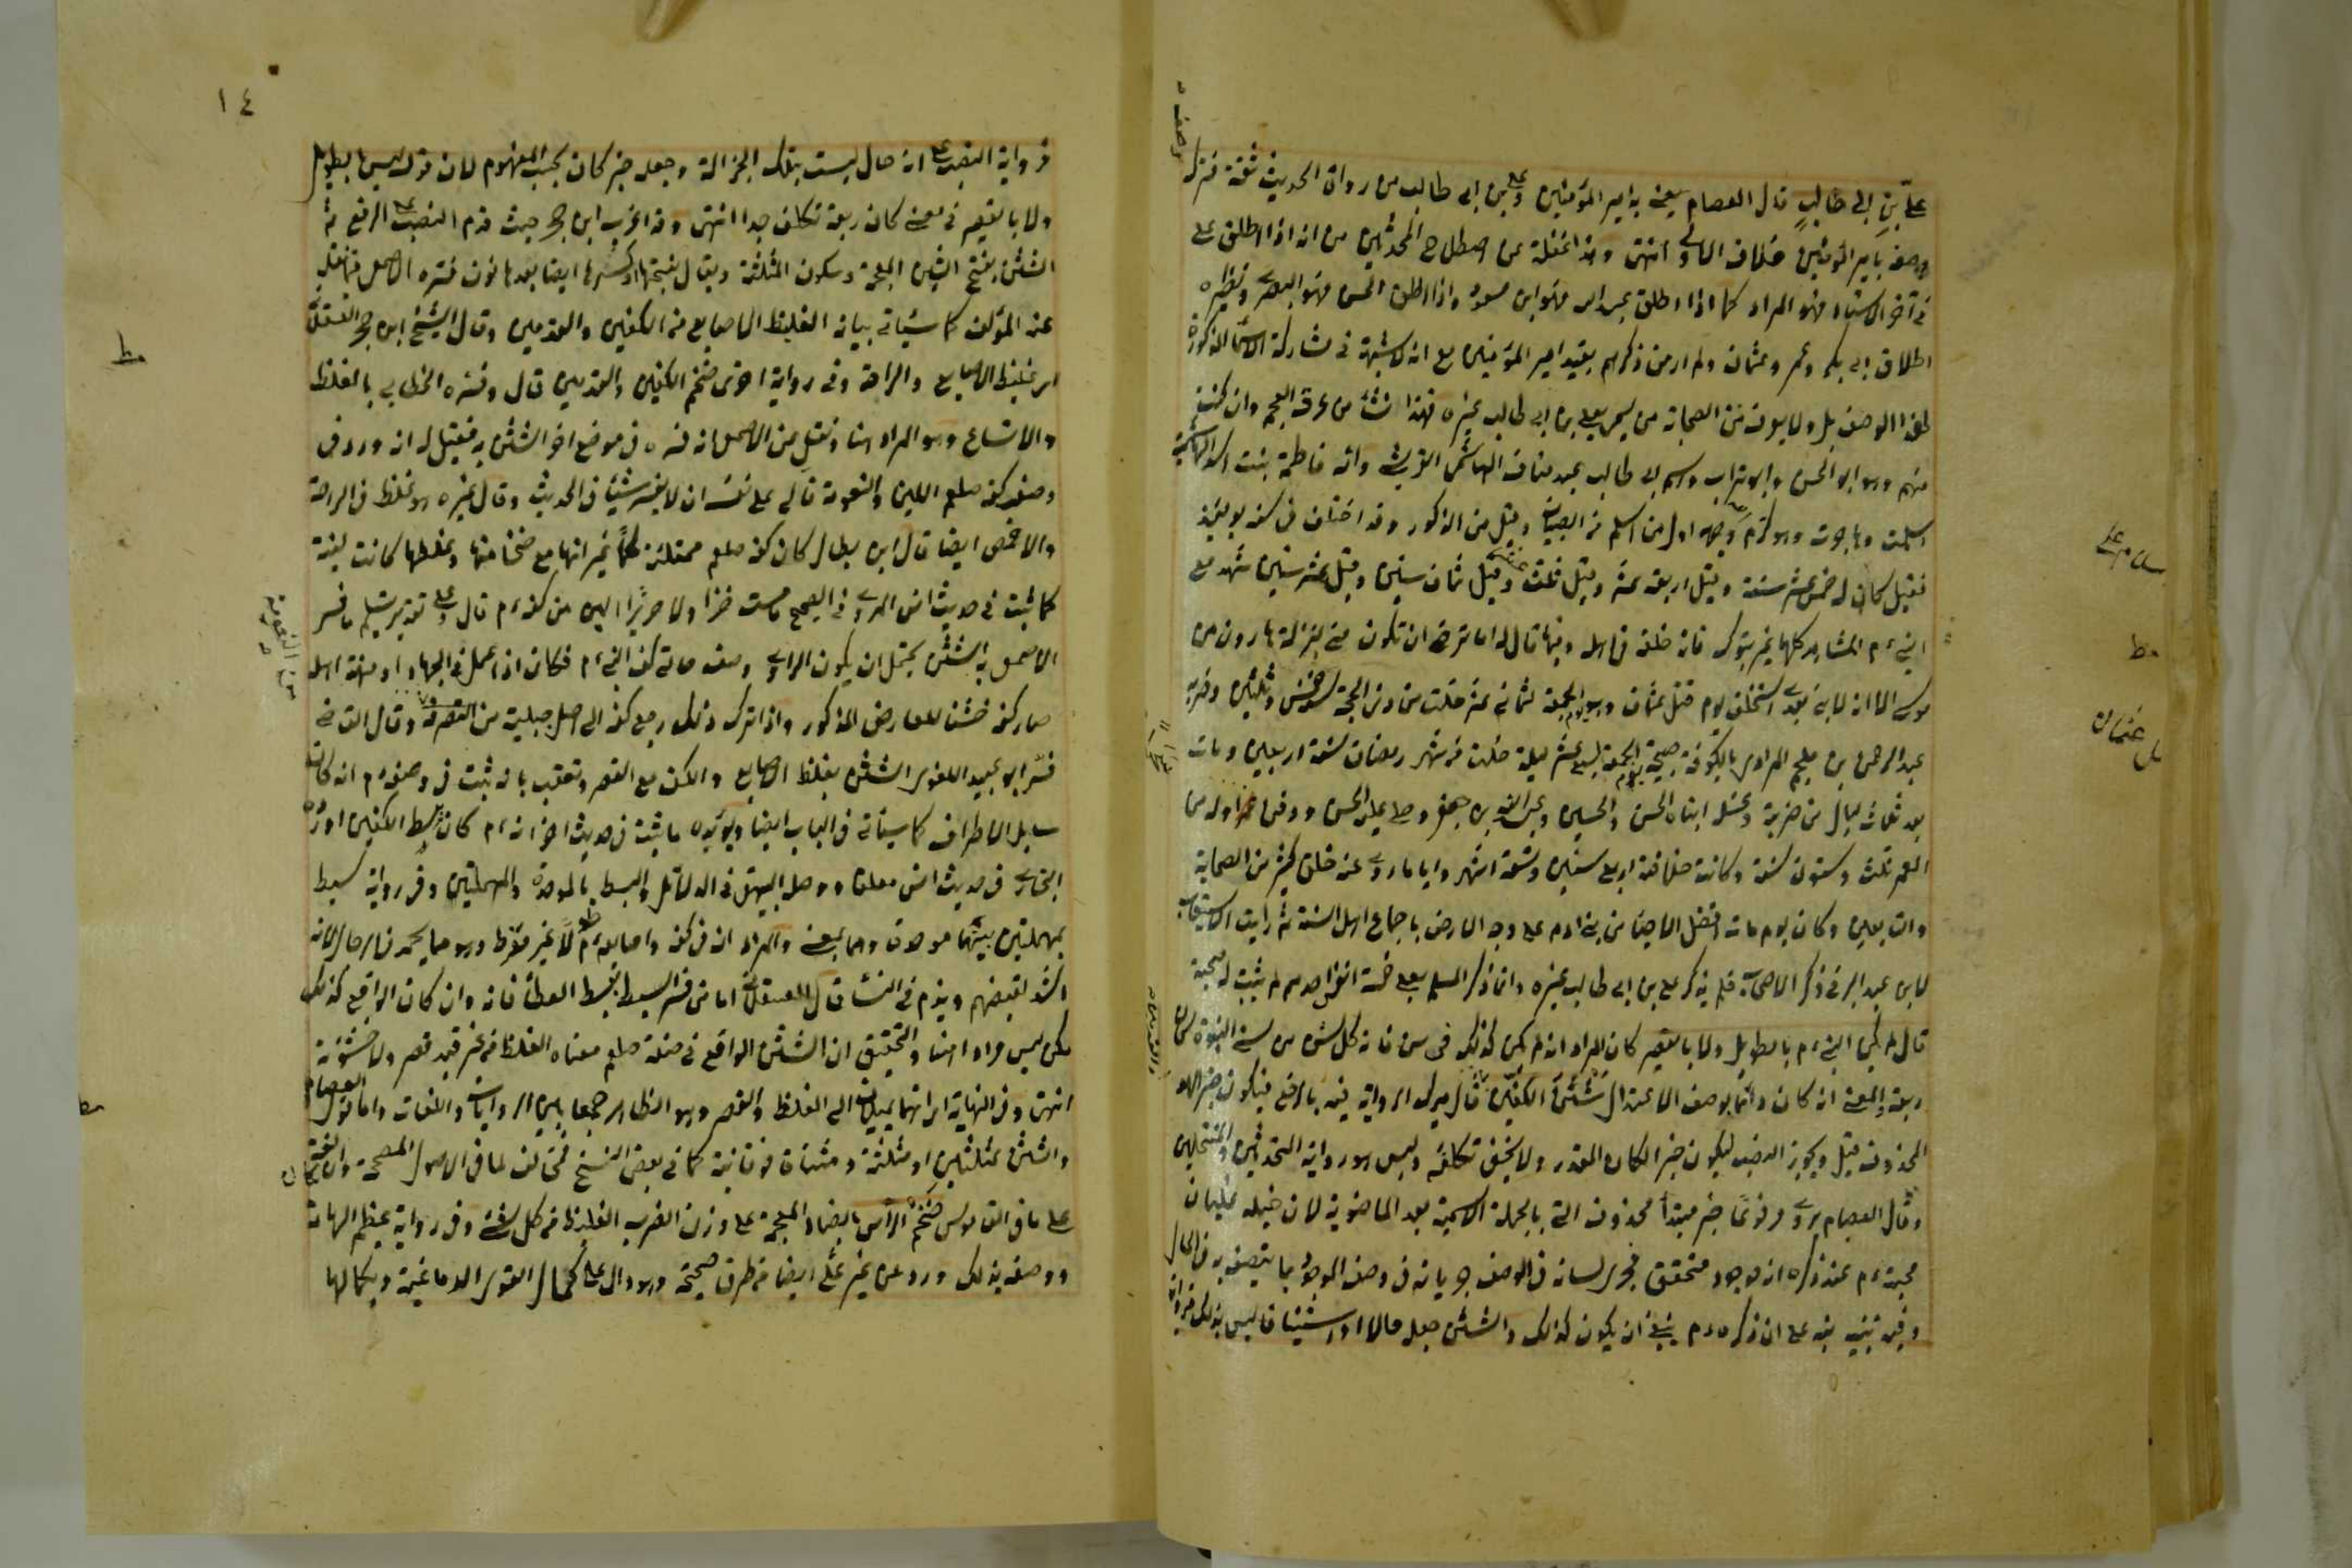 علي بن ابي طالب قال العصام يعني به امير المؤمنين وعلي بن ابي طالب من رواة الحديث ثقة فترك
وصفه بامير المؤمنين خلاف الاولى انتهى وهذا غفلة عن اصطلاح المحدثين من انه اذا اطلق علي
في آخر الاسناد فهو المراد كما اذا اطلق عبد الله فهو ابن مسعود واذا اطلق الحسن فهو البصري ونظيره
اطلاق ابي بكر وعمر وعثمان ولم ار من ذكرهم بقيد امير المؤمنين مع انه لا شبهة في مشاركة الاسماء المذكورة
لهذا الوصف بل ولا يعرف من الصحابة من يسمى بعلي بن ابي طالب غيره فهذا نشأ من عرف العجم وان كنت
منهم وهو ابو الحسن وابو تراب واسم ابي طالب عبد مناف الهاشمي القرشي وامه فاطمة بنت اسد الهاشمية
اسلمت وهاجرت وهو كرم وجهه اول من اسلم من الصبيان وقيل من الذكور وقد اختلف في سنه يومئذ
فقيل كان له خمس عشر سنة وقيل اربعة عشر وقيل ثلث وقيل ثمان سنين وقيل عشر سنين شهد مع
النبي ءم المشاهد كلها غير تبوك فانه خلفه في اهله وفيها قال له اما ترضى ان تكون مني بمنزلة هارون من
موسى الا انه لا نبي بعدي استخلف يوم قتل عثمان وهو يوم الجمعة لثماني عشر خلت من ذي الحجة سنة خمس وثلثين وضربه
عبد الرحمن بن ملجم المرادي بالكوفة صبيحة يوم الجمعة لسبع عشر ليلة خلت من شهر رمضان سنة اربعين ومات
بعد ثلاث ليال من ضربه وغسله ابناه الحسن والحسين وعبد الله بن جعفر وصلى عليه الحسن ودفن سحرا وله من
العمر ثلث وستون سنة وكانت خلافته اربع سنين وتسعة اشهر واياما روى عنه خلق كثير من الصحابة
والتابعين وكان يوم مات افضل الاحياء من بني ادم على وجه الارض باجماع اهل السنة ثم رأيت الاستيعاب
لابن عبد البر في ذكر الاصحاب فلم يذكر علي بن ابي طالب غيره وانما ذكر المسمى بعلي خمسة انفس احدهم لم يثبت له صحبة
قال لم يكن النبي ءم بالطويل ولا بالقصير كان المراد انه لم يكن كذلك في سن فانه كل شيء من سني النبوة كان
ربعة والمعنى انه كان دائما بوصف الاعتدال شثن الكفين قال ميرك الرواية فيه بالرفع فيكون خبر المبتدأ
المحذوف قيل ويجوز النصب ليكون خبر الكان المقدر ولا يخفى تكلفه وليس هو رواية المحدثين والمنتحلين
وقال العصام يروى مرفوعا خبر مبتدأ محذوف اتى بالجملة الاسمية بعد الماضوية لان
محبته ءم عند ذكره انه موجود متحقق فجرى لسانه في الوصف جريانه في وصف الموجود بما يتصف به في الحال
وفيه تنبيه نبه على ان ذكره ءم ينبغي ان يكون كذلك والشثن جعل حالا او استينافا ليس بذلك
وصف
سنه م علي
مط
قتل عثمان
١٤
رواية النصب على انه حال ليست بتلك الجزالة وجعله خبر كان بحسب المفهوم لان قوله ليس بالطويل
ولا بالقصير في معنى كان ربعة تكلف جدا انتهى وقد اغرب ابن حجر حيث قدم النصب على الرفع ثم
الشثن بفتح الشين المعجمة وسكون المثلثة ويقال بفتحها او كسرها ايضا بعدها نون فسره الاصمعي فيما نقل
عنه المؤلف كما سيأتي بيانه الغليظ الاصابع من الكفين والقدمين وقال الشيخ ابن حجر العسقلاني
اي غليظ الاصابع والراحة وفي رواية اخرى ضخم الكفين والقدمين قال وفسره الخطابي بالغلظ
والاتساع وهو المراد هنا ونقل عن الاصمعي انه فسره في موضع اخر الشثن به فقيل له انه ورد في
وصف كفه صلعم اللين والنعومة فآلى على نفسه ان لا يفسر شيئا في الحديث وقال غيره هو غلظ في الراحة
والاخمص ايضا قال ابن بطال كان كفه صلعم ممتلئة لحما غير انها مع ضخامتها وغلظها كانت لينة
كما ثبت في حديث انس المروي في الصحيح ما مسست خزا ولا حريرا الين من كفه ءم قال وعلى تقدير تسليم ما فسر
الاصمعي به الشثن يحتمل ان يكون الراوي وصف حالة كف النبي ءم فكان اذا عمل في الجهاد او مهنة اهله
صار كفه خشنا للعارض المذكور واذا ترك ذلك رجع كفه الى اصل جبليته من النعومة وقال القاضي
فسر ابو عبيد اللغوي الشثن بغلظ الاصابع والكف مع القصر وتعقب بانه ثبت في وصفه ءم انه كان
سابل الاطراف كما سيأتي في الباب ايضا ويؤيده ما ثبت في حديث اخر انه ءم كان بسط الكفين اورده
البخاري في حديث انس معلقا ووصله البيهقي في الدلائل والبسط بالموحدة والمهملتين وفي رواية سبط
بمهملتين بينهما موحدة وهما بمعنى والمراد ان في كفه واصابعه ءم طولا غير مفرط وهو مما يحمد في الرجال لانه
اشد لقبضهم ويذم في النساء قال العسقلاني اما من فسر السبط ببسط العطاء فانه وان كان الواقع كذلك
لكن ليس مرادا هنا والتحقيق ان الشثن الواقع في صفته صلعم معناه الغلظ من غير قيد قصر ولا خشونة
انتهى وفي النهاية اي انهما يميلان الى الغلظ والقصر وهو الظاهر جمعا بين الروايات واللغات واما قول العصام
والشثن بمثلثتين او مثلثة ومثناة فوقانية كما في بعض النسخ فمخالف لما في الاصول المصححة واللغة
على ما في القاموس ضخم الرأس بالضاد المعجمة على وزن الضرب الغليظ من كل شيء وفي رواية عظيم الهامة
ووصفه بذلك ورد عن غير علي ايضا من طرق صحيحة وهو دال على كمال القوى الدماغية وبكمالها
مط
من النعومة
مط